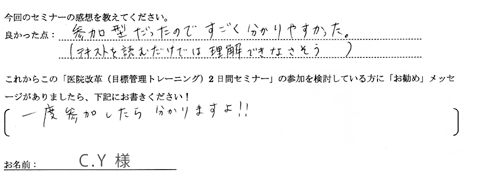 今回のセミナーの感想を教えてください。
良かった点： 参加型だったのですごく分かりやすかった。
(テキストを読むだけでは理解できなさそう)
これからこの「医院改革（目標管理トレーニング）２日間セミナー」の参加を検討している方に「お勧め」メッセ
ージがありましたら、下記にお書きください！
一度参加したら分かりますよ!!
お名前： C.Y 様